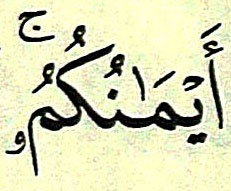 أَيْمَٰنُكُمُۥۚ